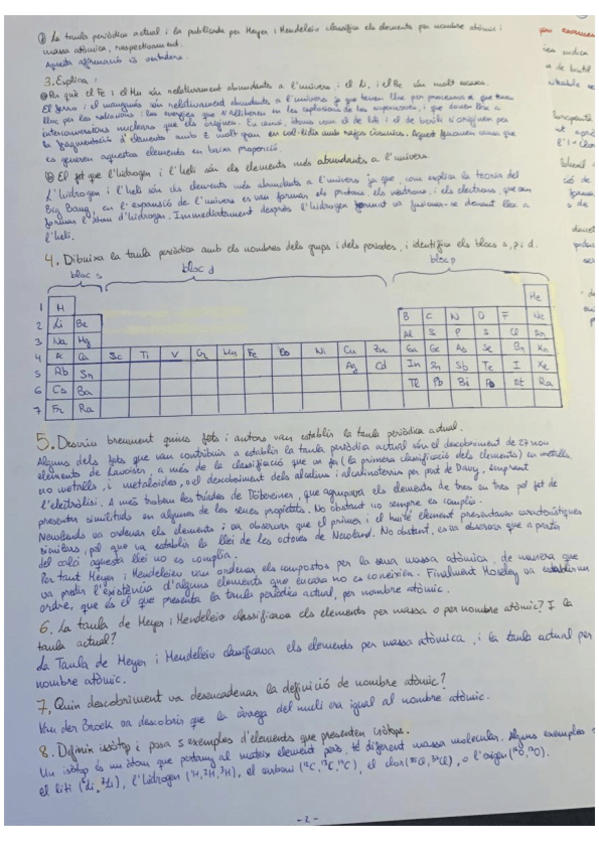 ② La taula periòdica actual i la publicada per Meyer i Mendeleiv classifica els elements per nombre atòmic i
massa atòmica, respectivament.
Aquesta afirmació és vertadera.
3. Explica:
ⓐ Per què el Fe i el Mn són relativament abundants a l'univers i el Li, i el Be són molt escassos.
El ferro i el manganès són relativament abundants a l'univers ja que tenen lloc per processos que tenen
lloc per les
interconversions nuclears que els origina. En canvi, àtoms com el de liti i el de beril·li s'originen per
la fragmentació d'elements amb Z molt gran en col·lidir amb raigs còsmics. Aquest fenomen causa que
es generen aquestos elements en baixa proporció.
ⓑ El fet que l'hidrogen i l'heli són els elements més abundants a l'univers.
L'hidrogen i l'heli són els elements més abundants a l'univers ja que, com explica la teoria del
Big Bang, en l'expansió de l'univers es van formar els protons, els neutrons, i els electrons, que van
formar l'àtom d'hidrogen. Immediatament després l'hidrogen format va fusionar-se donant lloc a
l'heli.
4. Dibuixa la taula periòdica amb els nombres dels grups i dels períodes, i identifica els blocs s, p i d.
bloc s bloc d bloc p
1 H He
2 Li Be B C N O F Ne
3 Na Mg Al S P S Cl Ar
4 K Ca Sc Ti V Cr Mn Fe Co Ni Cu Zn Ga Ge As Se Br Kr
5 Rb Sr Ag Cd In Sn Sb Te I Xe
6 Cs Ba Tl Pb Bi Po At Ra
7 Fr Ra
5. Descriu breument quins fets i autors van establir la taula periòdica actual.
Alguns dels fets que van contribuir a establir la taula periòdica actual són el descobriment de 27 nou
elements de Lavoisier, a més de la classificació que va fer (la primera classificació dels elements) en metalls,
no metalls, i metaloides, o el descobriment dels alcalins i alcalinoterris per part de Davy, emprant
l'electròlisi. A més trobem les tríades de Döbereiner, que agrupava els elements de tres en tres pel fet de
presentar similitud en algunes de les seues propietats. No obstant no sempre es complia.
Newlands va ordenar els elements i va observar que el primer i el huitè element presentaven característiques
similars, pel que va establir la llei de les octaves de Newland. No obstant, es va observar que a partir
del calci aquesta llei no es complia.
Per tant Meyer i Mendeleiev van ordenar els compostos per la seua massa atòmica, de manera que
va predir l'existència d'alguns elements que encara no es coneixien. Finalment Moseley va establir un
ordre, que és el que presenta la taula periòdica actual, per nombre atòmic.
6. La taula de Meyer i Mendeleiv classificava els elements per massa o per nombre atòmic? I la
taula actual?
La Taula de Meyer i Mendeleiv classificava els elements per massa atòmica, i la taula actual per
nombre atòmic.
7, Quin descobriment va desencadenar la definició de nombre atòmic?
Van der Broek va descobrir que la càrrega del nucli era igual al nombre atòmic.
8. Definix isòtop i posa 5 exemples d'elements que presenten isòtops.
Un isòtop és un àtom que pertany al mateix element però té diferent massa molecular. Alguns exemples
el liti (⁶Li, ⁷Li), l'hidrogen (¹H, ²H, ³H), el carboni (¹²C, ¹³C, ¹⁴C), el clor
-2-